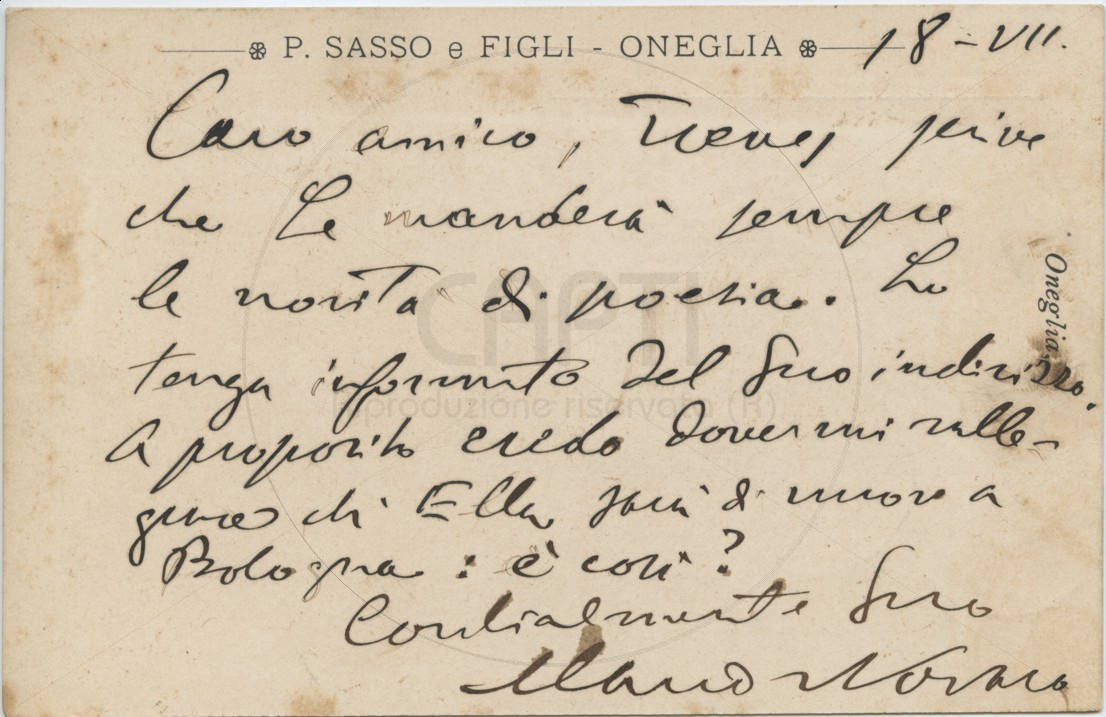 P. SASSO e FIGLI - ONEGLIA
18-VII.
Caro amico, Treves scrive
che Le manderà sempre
le novità di poesia. Lo
tenga informato del Suo indirizzo.
A proposito credo dovermi ralle-
grare ch'Ella sarà di nuovo a
Bologna: è così?
Cordialmente Suo
Mario Novaro
Oneglia,
CAPTI
riproduzione riservata (R)